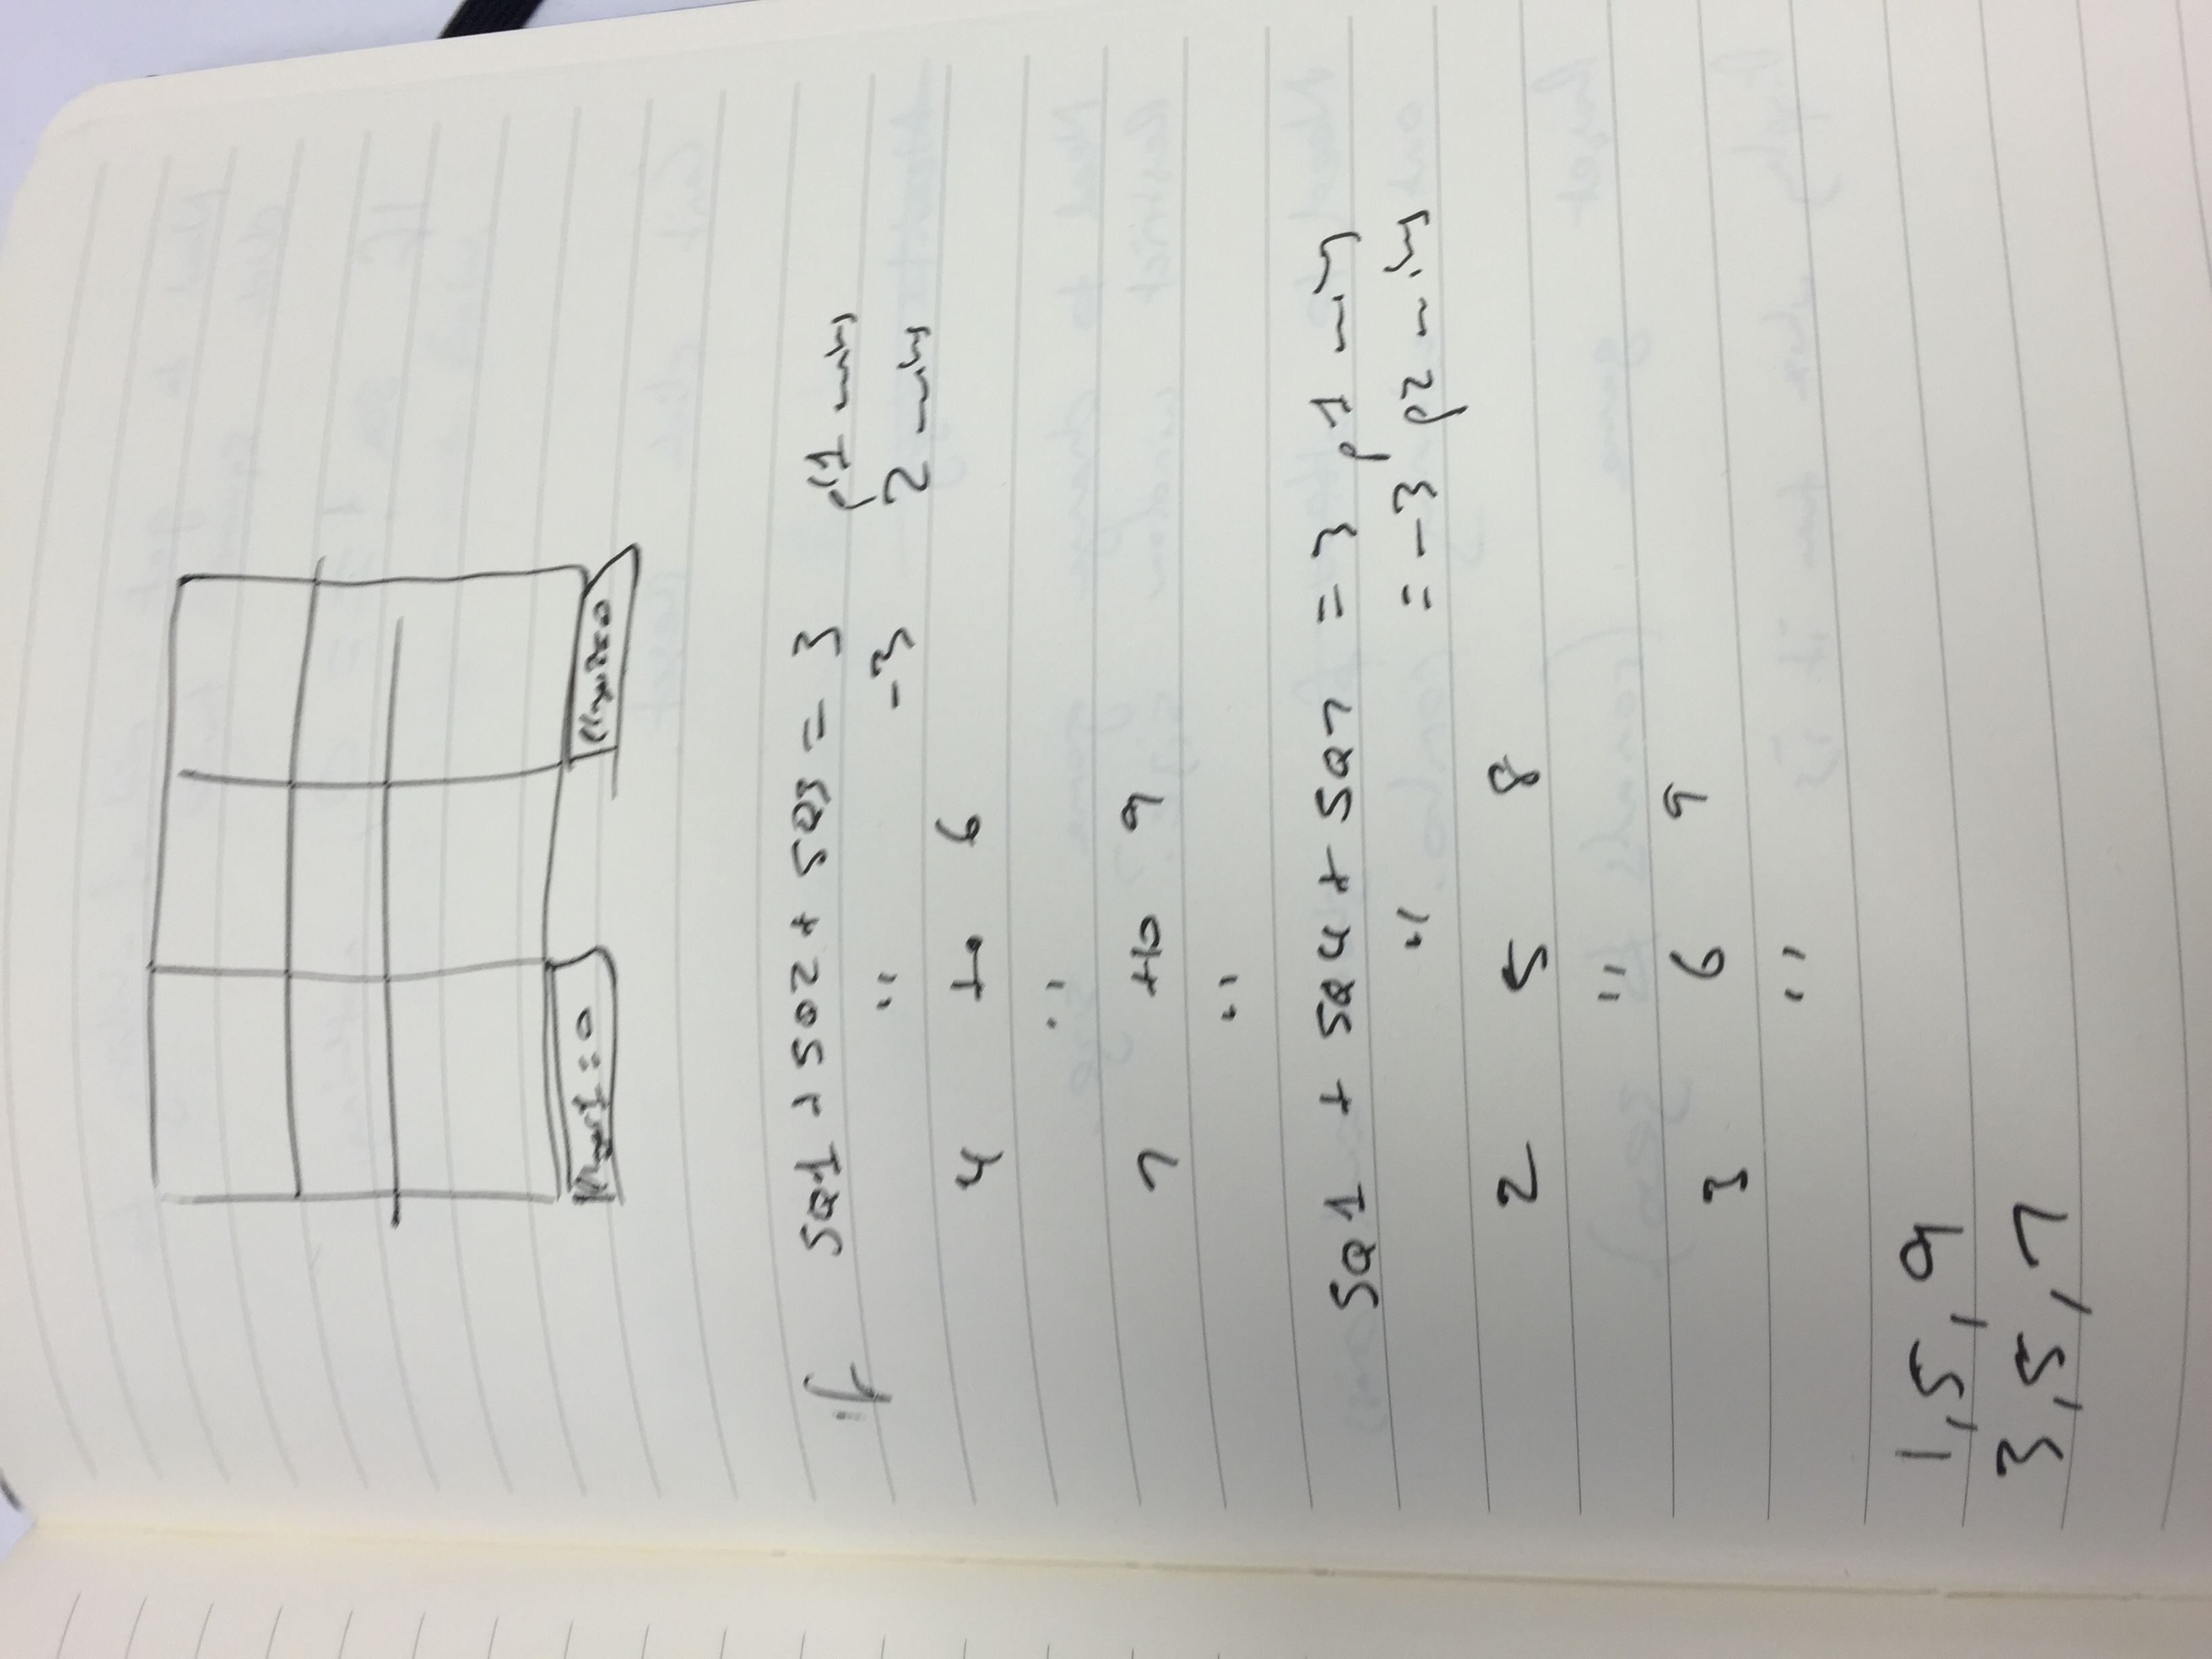 Player1 = 0 Player2=0
if SQ1 + SQ2 + SQ3 = 3 pl1 wins
" -3 2 wins
4 to 6
"
7 to 9
"
SQ1 + SQ4 + SQ7 = 3 p1 wins
" = -3 p2 wins
2 5 8
"
3 6 9
"
1, 5, 9
3, 5, 7